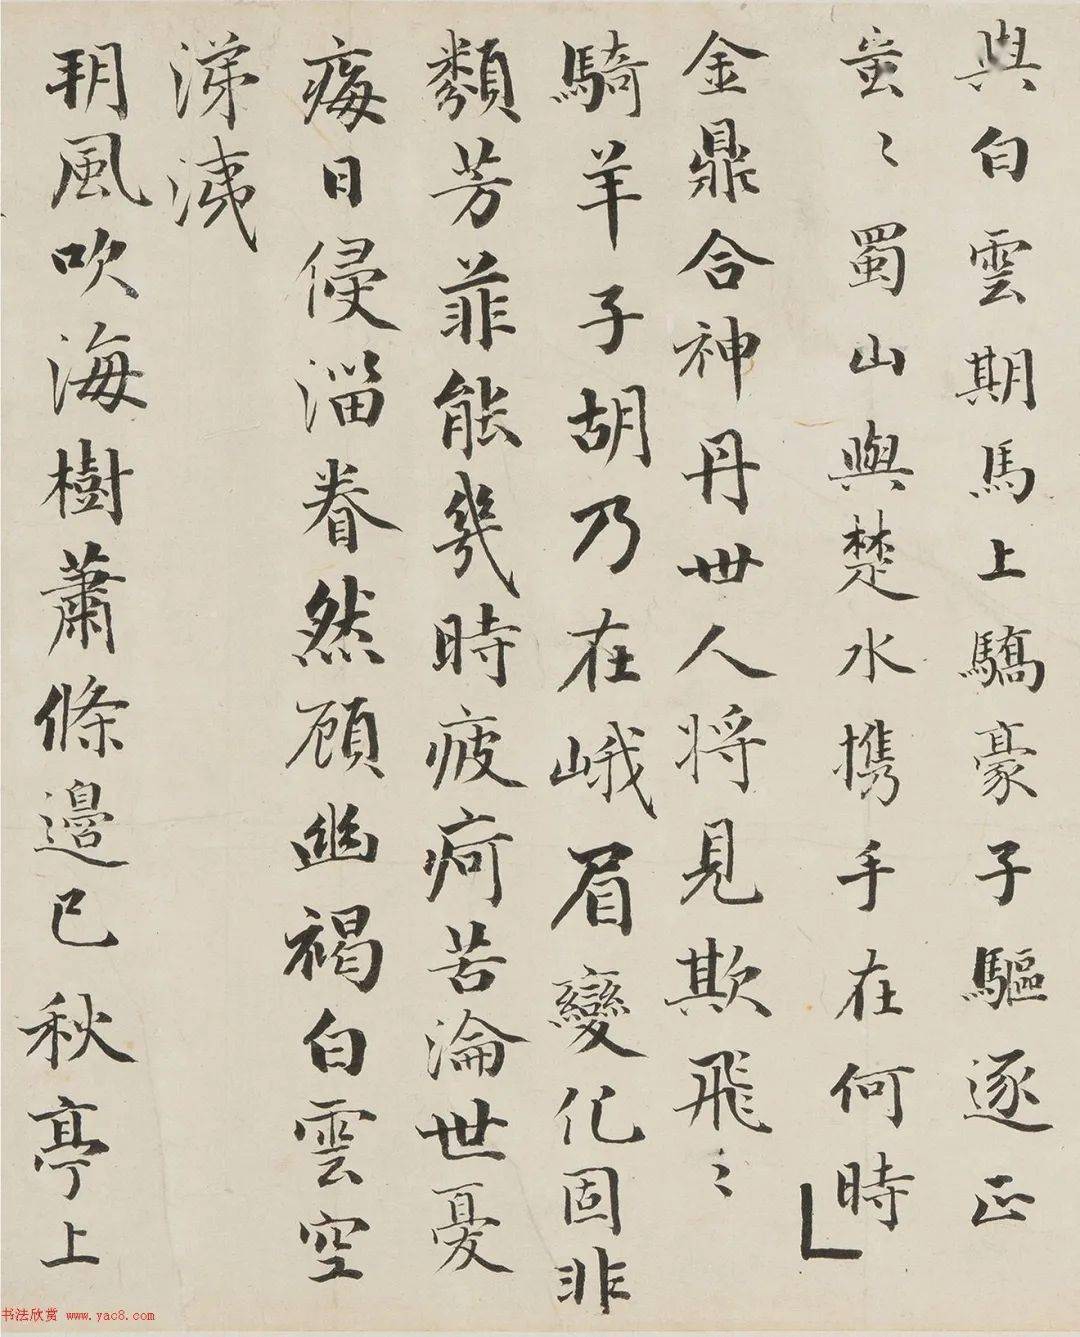 與白雲期馬上驕豪子驅逐正
蚩〻蜀山與楚水携手在何時
金鼎合神丹世人將見欺飛〻
騎羊子胡乃在峨眉變化固非
類芳菲能幾時疲疴苦淪世憂
痗日侵淄眷然顧幽褐白雲空
涕洟
朔風吹海樹蕭條邊已秋亭上
书法欣赏 www.yac8.com